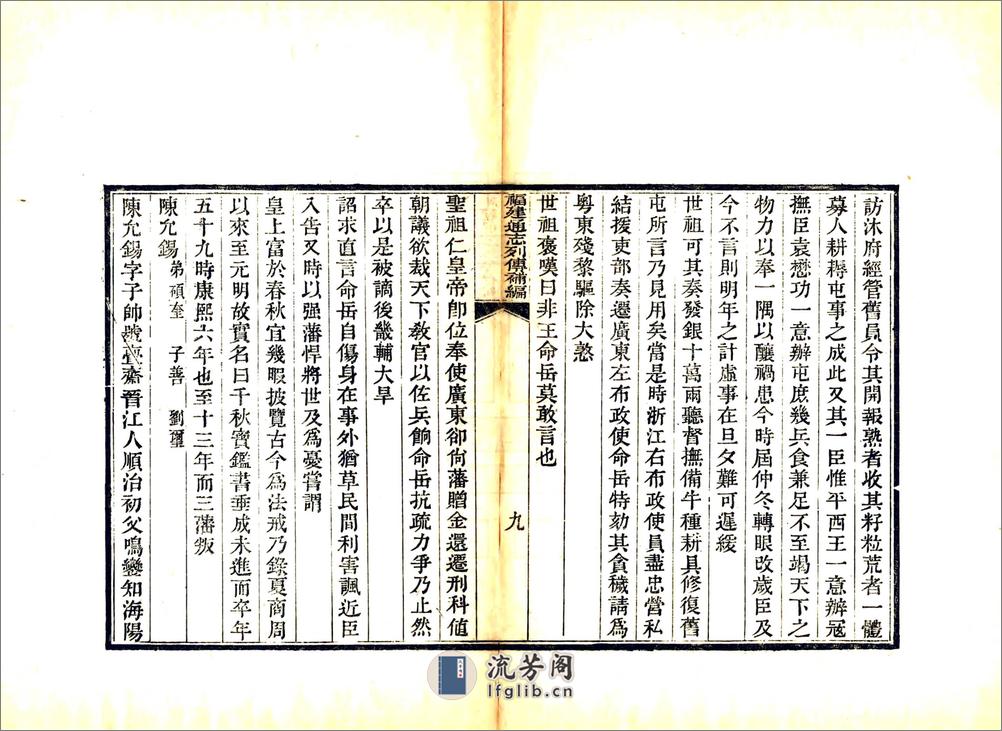 訪沐府經管舊員令其開報熟者收其籽粒荒者一體
募人耕耨屯事之成此又其一臣惟平西王一意辦寇
撫臣袁懋功一意辦屯庶幾兵食兼足不至竭天下之
物力以奉一隅以釀禍患今時屆仲冬轉眼改歲臣及
今不言則明年之計虛事在旦夕難可遲緩
世祖可其奏發銀十萬兩聽督撫備牛種耕具修復舊
屯所言乃見用矣當是時浙江右布政使員盡忠營私
結援吏部奏遷廣東左布政使命岳特劾其貪穢請爲
粵東殘黎驅除大憝
世祖褒嘆曰非王命岳莫敢言也
福建通志列傳補編
九
聖祖仁皇帝卽位奉使廣東卻尙藩贈金還遷刑科値
朝議欲裁天下敎官以佐兵餉命岳抗疏力爭乃止然
卒以是被謫後畿輔大旱
詔求直言命岳自傷身在事外猶草民間利害諷近臣
入告又時以强藩悍將世及爲憂嘗謂
皇上富於春秋宜幾暇披覽古今爲法戒乃錄夏商周
以來至元明故實名曰千秋寶鑑書垂成未進而卒年
五十九時康熙六年也至十三年而三藩叛
陳允錫 弟碩奎 子善 劉璽
陳允錫字子帥號亹齋晋江人順治初父鳴鑾知海陽
流芳阁
lfglib.cn